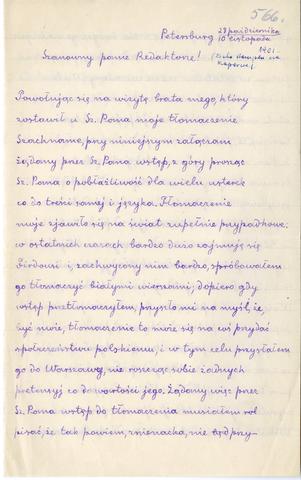 566.
Petersburg 28 października
10 listopada
1901.
Szanowny panie Redaktorze!
Powołując się na wizytę brata mego, który
zostawił u Sz. Pana moje tłomaczenie
Szachname, przy niniejszym załączam
żądany przez Sz. Pana wstęp, z góry prosząc
Sz. Pana o pobłażliwość dla wielu usterek
co do treści samej i języka. Tłomaczenie
moje zjawiło się na świat zupełnie przypadkowo:
w ostatnich czasach bardzo dużo zajmuję się
Firdousi i, zachwycony nim bardzo, spróbowałem
go tłomaczyć białymi wierszami; dopiero gdy
wstęp przetłomaczyłem, przyszło mi na myśl, że,
być może, tłomaczenie to może się na coś przydać
społeczeństwu polskiemu, i w tym celu przysłałem
go do Warszawy, nie roszcząc sobie żadnych
pretensyj co do wartości jego. Żądany więc przez
Sz. Pana wstęp do tłomaczenia musiałem na-
pisać, że tak powiem, znienacka, nie będąc przy-